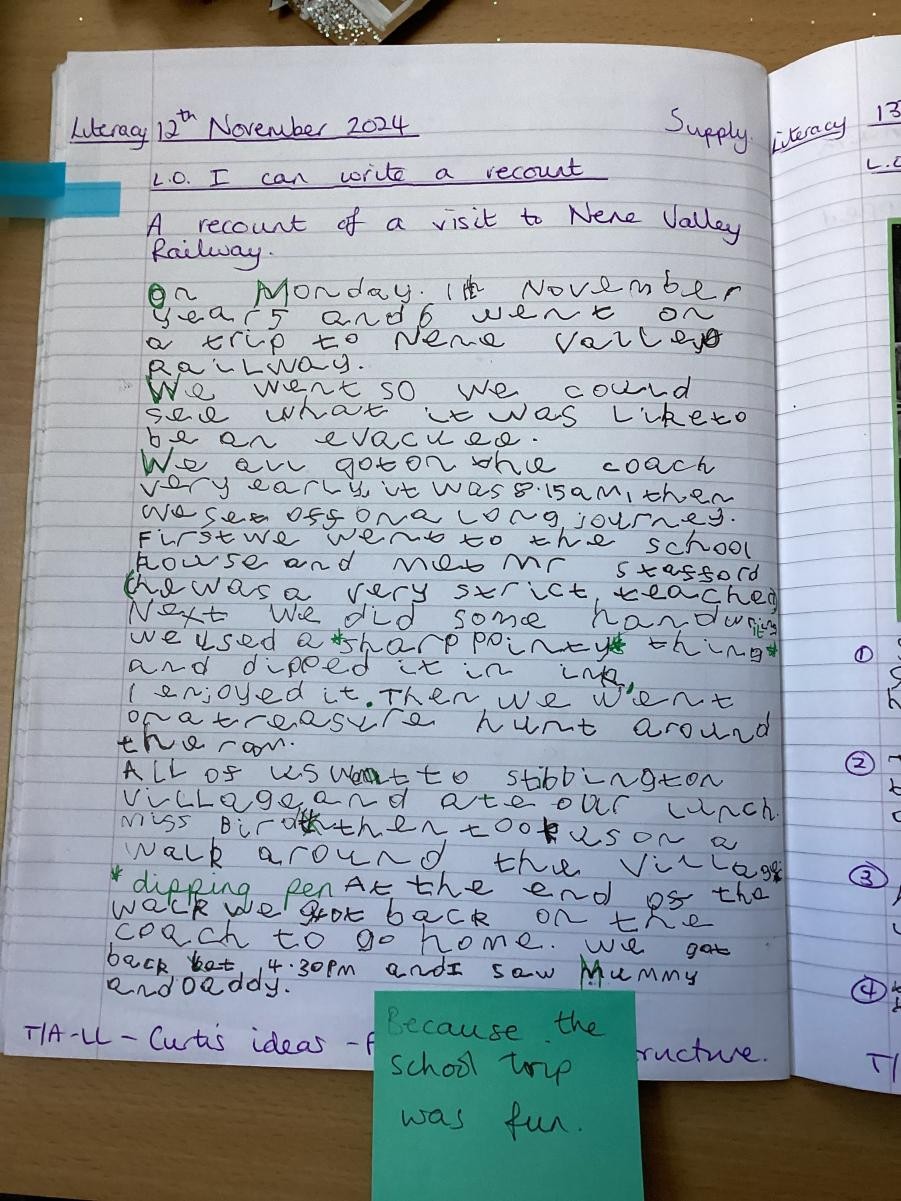 Literacy 12th November 2024 Supply.
L.O. I can write a recount
A recount of a visit to Nene Valley
Railway.
On Monday. 11th November
year 5 and 6 went on
a trip to Nene Valley
Railway.
We went so we could
see what it was like to
be an evacuee.
We all got on the coach
very early, it was 8.15am, then
we set off on a long journey.
First we went to the school
house and met Mr Stafford
he was a very strict teacher
Next we did some handwriting
we used a *sharp pointy* thing*
and dipped it in ink,
I enjoyed it. Then we went
on a treasure hunt around
the room.
All of us went to Stibbington
village and ate our lunch.
Miss then took us on a
walk around the village
*dipping pen At the end of the
walk we got back on the
coach to go home. We got
back at 4.30pm and I saw Mummy
and Daddy.
T/A-LL - Curtis ideas - ructure.
Because the
school trip
was fun.
Literacy 13
L.O
1
2
3
4
T/